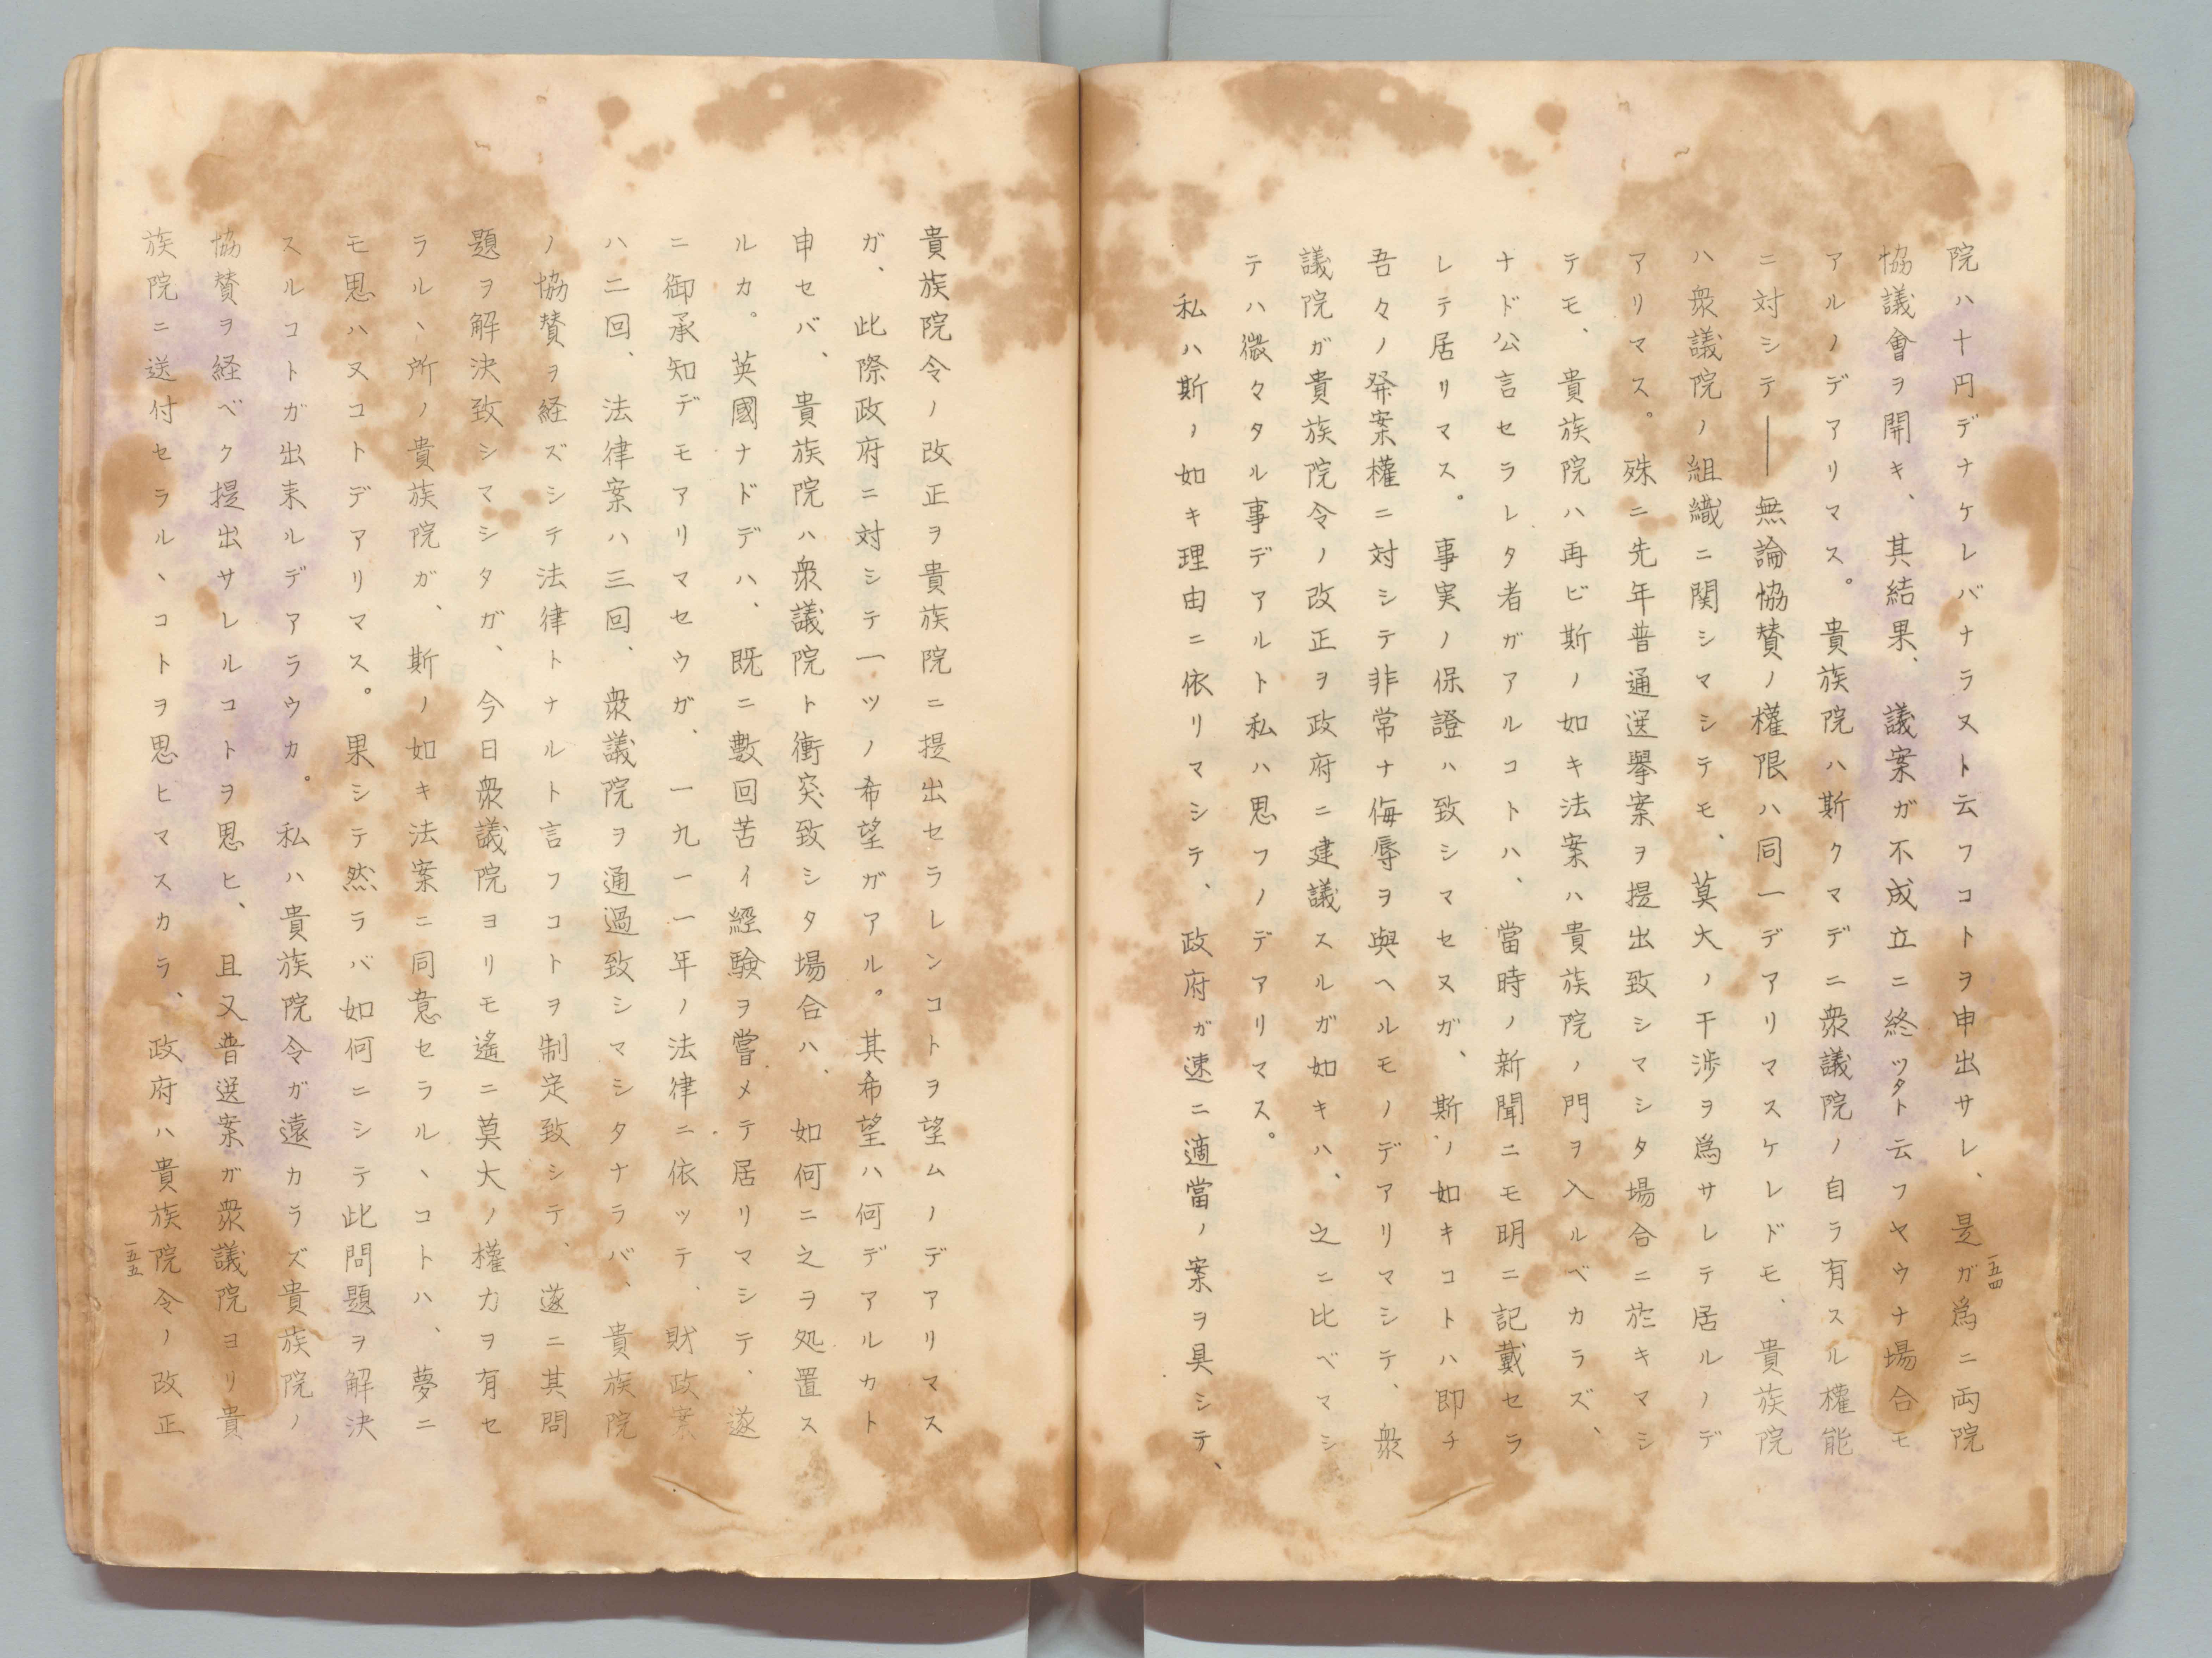 院ハ十円デナケレバナラヌト云フコトヲ申出サレ、是ガ爲ニ両院
協議會ヲ開キ、其結果、議案ガ不成立ニ終ッタト云フヤウナ場合モ
アルノデアリマス。貴族院ハ斯クマデニ衆議院ノ自ラ有スル權能
ニ対シテ――無論協賛ノ權限ハ同一デアリマスケレドモ、貴族院
ハ衆議院ノ組織ニ関シマシテモ、莫大ノ干渉ヲ爲サレテ居ルノデ
アリマス。殊ニ先年普通選擧案ヲ提出致シマシタ場合ニ於キマシ
テモ、貴族院ハ再ビ斯ノ如キ法案ハ貴族院ノ門ヲ入ルベカラズ、
ナド公言セラレタ者ガアルコトハ、當時ノ新聞ニモ明ニ記載セラ
レテ居リマス。事実ノ保證ハ致シマセヌガ、斯ノ如キコトハ即チ
吾々ノ発案權ニ対シテ非常ナ侮辱ヲ與ヘルモノデアリマシテ、衆
議院ガ貴族院令ノ改正ヲ政府ニ建議スルガ如キハ、之ニ比ベマシ
テハ微々タル事デアルト私ハ思フノデアリマス。
私ハ斯ノ如キ理由ニ依リマシテ、政府ガ速ニ適當ノ案ヲ具シテ、
一五四
貴族院令ノ改正ヲ貴族院ニ提出セラレンコトヲ望ムノデアリマス
ガ、此際政府ニ対シテ一ツノ希望ガアル。其希望ハ何デアルカト
申セバ、貴族院ハ衆議院ト衝突致シタ場合ハ、如何ニ之ヲ処置ス
ルカ。英國ナドデハ、既ニ數回苦イ經験ヲ嘗メテ居リマシテ、遂
ニ御承知デモアリマセウガ、一九一一年ノ法律ニ依ッテ、財政案
ハ二回、法律案ハ三回、衆議院ヲ通過致シマシタナラバ、貴族院
ノ協賛ヲ経ズシテ法律トナルト言フコトヲ制定致シテ、遂ニ其問
題ヲ解決致シマシタガ、今日衆議院ヨリモ遙ニ莫大ノ權力ヲ有セ
ラルヽ所ノ貴族院ガ、斯ノ如キ法案ニ同意セラルヽコトハ、夢ニ
モ思ハヌコトデアリマス。果シテ然ラバ如何ニシテ此問題ヲ解決
スルコトガ出来ルデアラウカ。私ハ貴族院令ガ遠カラズ貴族院ノ
協賛ヲ経ベク提出サレルコトヲ思ヒ、且又普選案ガ衆議院ヨリ貴
族院ニ送付セラルヽコトヲ思ヒマスカラ、政府ハ貴族院令ノ改正
一五五